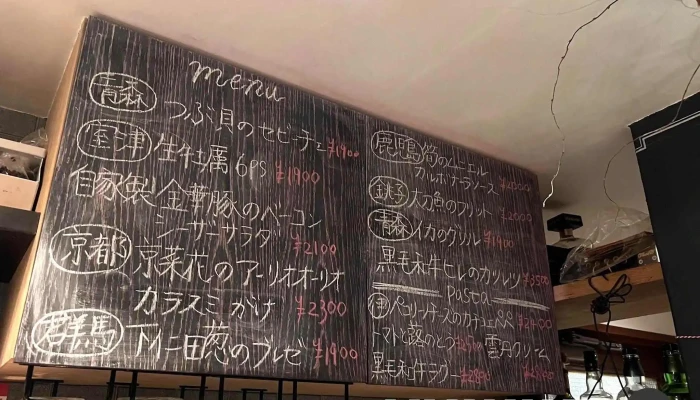 menu
青森 つぶ貝のセビーチェ ¥1900
室津 生牡蠣 6PS ¥1900
自家製 金華豚のベーコン
シーザーサラダ ¥2100
京都 京菜花のアーリオオーリオ
カラスミがけ ¥2300
群馬 下仁田葱のブレゼ ¥1900
鹿児島 筍のソテー
カルボナーラソース
銚子 太刀魚のフリット ¥2000
青森 イカのグリル ¥1900
黒毛和牛ヒレのカツレツ ¥3500
pasta
ペコリーノチーズのカチョエペペ
トマトと
黒毛和牛ラグー